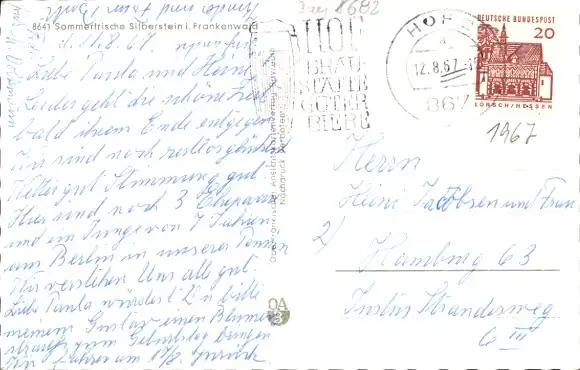 8641 Sommerfrische Silberstein i. Frankenwald
d. 11.8.67
Liebe Tanta und Heini
Leider geht die schöne Zeit
bald ihrem Ende entgegen
Wir sind noch restlos glücklich
Wetter gut Stimmung gut
Hier sind noch 3 Ehepaare
und ein Junge von 7 Jahren
aus Berlin in unserer Pension
Wir verstehen Uns alle gut.
Liebe Tanta würdest D'n bitte
meinem Gustav einen Blumen
strauß zum Geburtstag bringen
Wir fahren am 19/8. zurück
Nachdruck verboten
OA
HOF
BRAU
STÄTTE
GUTER
BIERE
HOF
a
12.8.67
867
DEUTSCHE BUNDESPOST
20
LORSCH/HESSEN
1967
Herrn
Heini Jacobsen und Frau
2) Hamburg 63
Justus Strandesweg
6 III